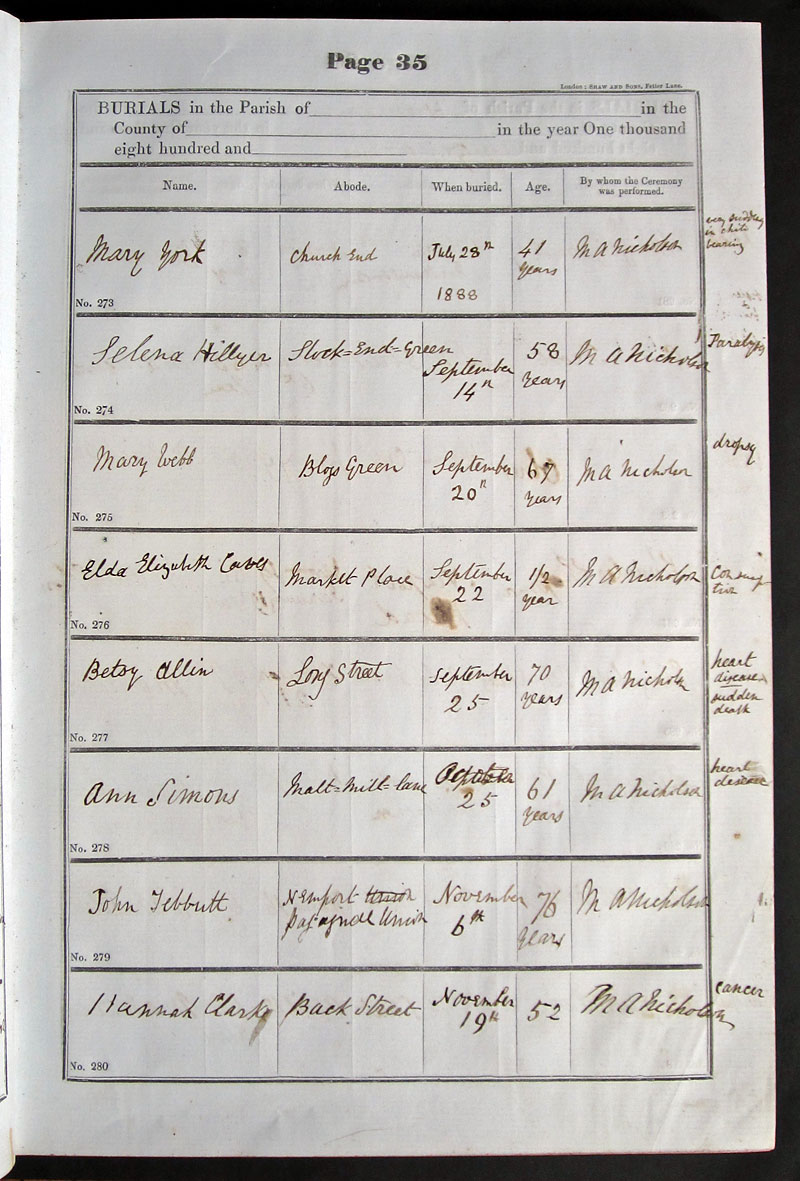 Page 35
London: SHAW AND SONS, Fetter Lane.
BURIALS in the Parish of in the
County of in the year One thousand
eight hundred and
Name. Abode. When buried. Age. By whom the Ceremony was performed.
Mary York Church End July 28th 41 years M A Nicholson very suddenly in child bearing
1888
No. 273
Selena Hillyer Stock=End=Green September 14th 58 years M A Nicholson Paralysis
No. 274
Mary Webb Blogs Green September 20th 67 years M A Nicholson dropsy
No. 275
Elda Elizabeth Caves Market Place September 22 1/2 year M A Nicholson Consumption
No. 276
Betsy Allin Long Street September 25 70 years M A Nicholson heart disease sudden death
No. 277
Ann Simons Malt=Mill=lane October 25 61 years M A Nicholson heart disease
No. 278
John Tebbutt Newport Union November 6th 76 years M A Nicholson
Pagnell Union
No. 279
Hannah Clarke Back Street November 19th 52 M A Nicholson cancer
No. 280